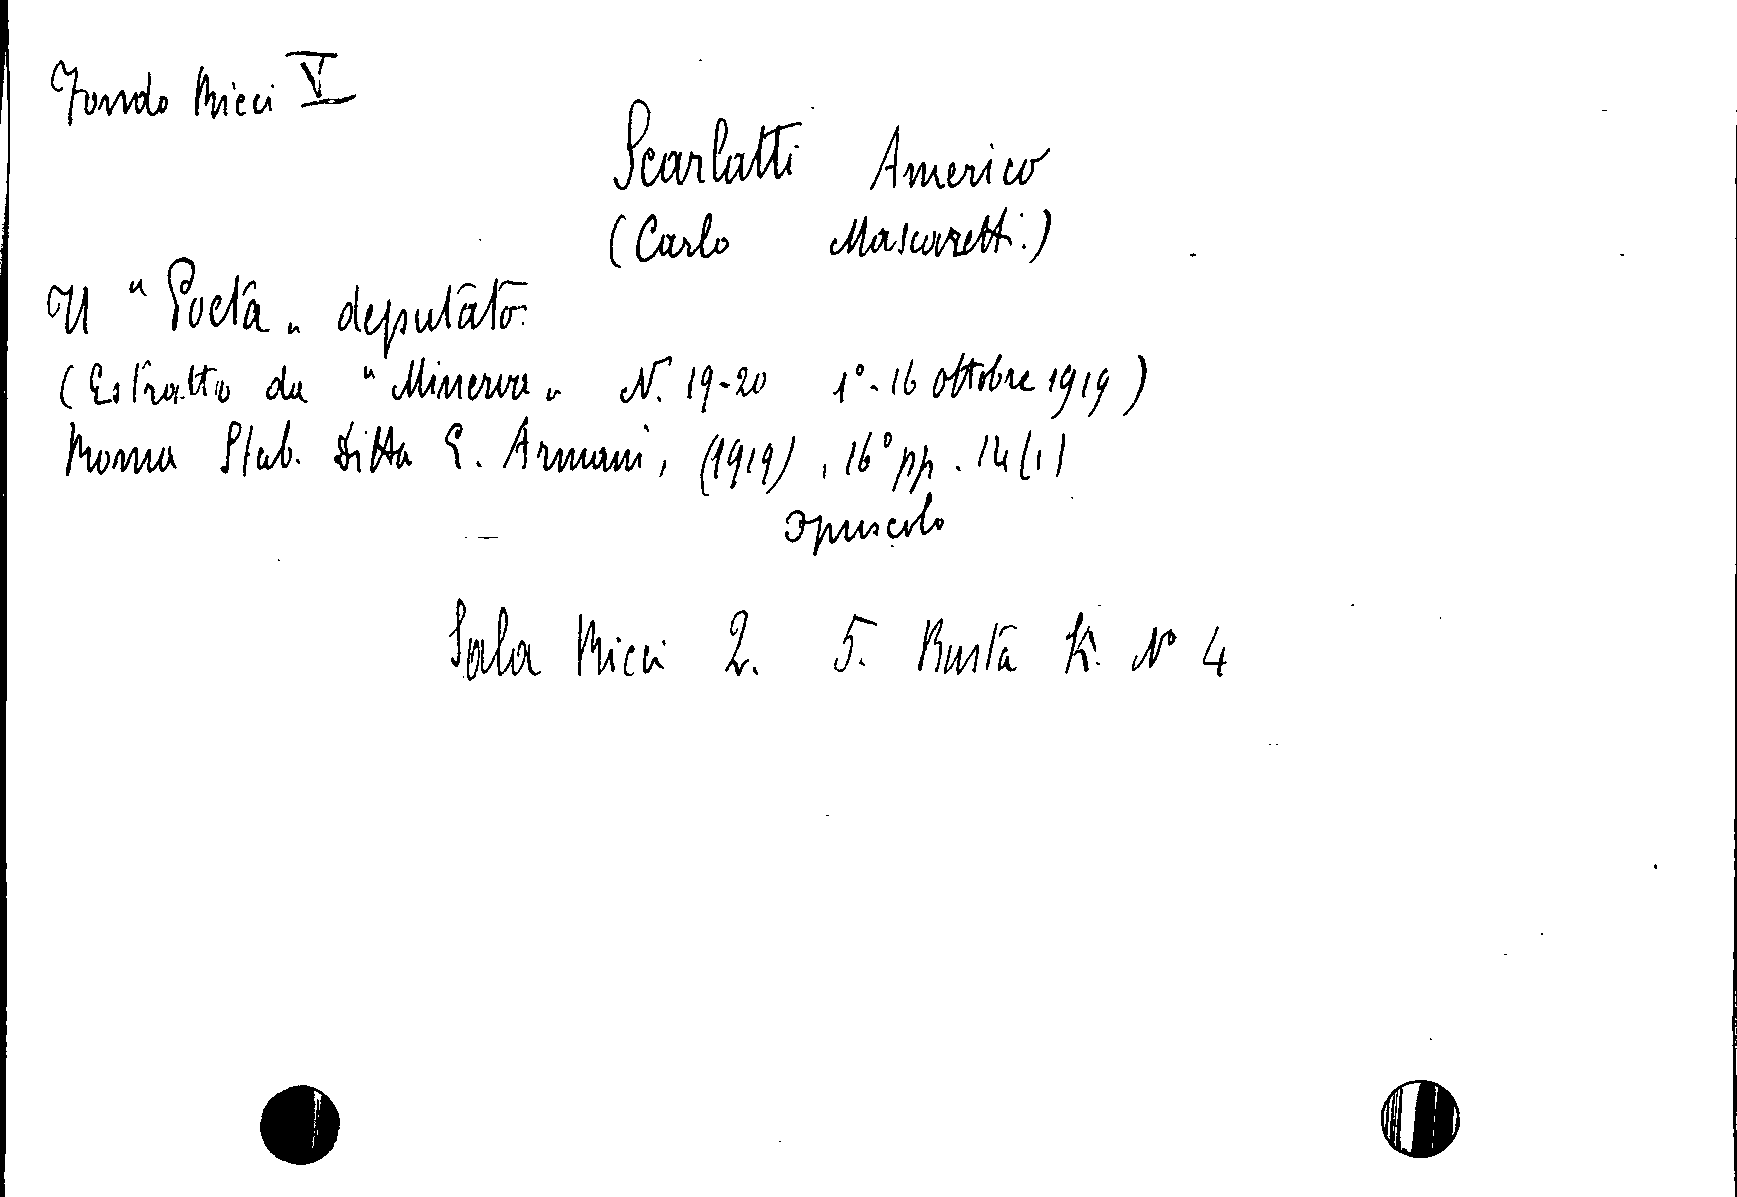 Fondo Ricci V
Scarlatti Americo
(Carlo Mascaretti.)
Il "Poeta" deputato.
(Estratto da "Minerva" N. 19-20 1°-16 ottobre 1919)
Roma Stab. Ditta E. Armani, (1919), 16° pp. 14 (1)
opuscolo
Sala Ricci 2. 5. Busta K. N° 4